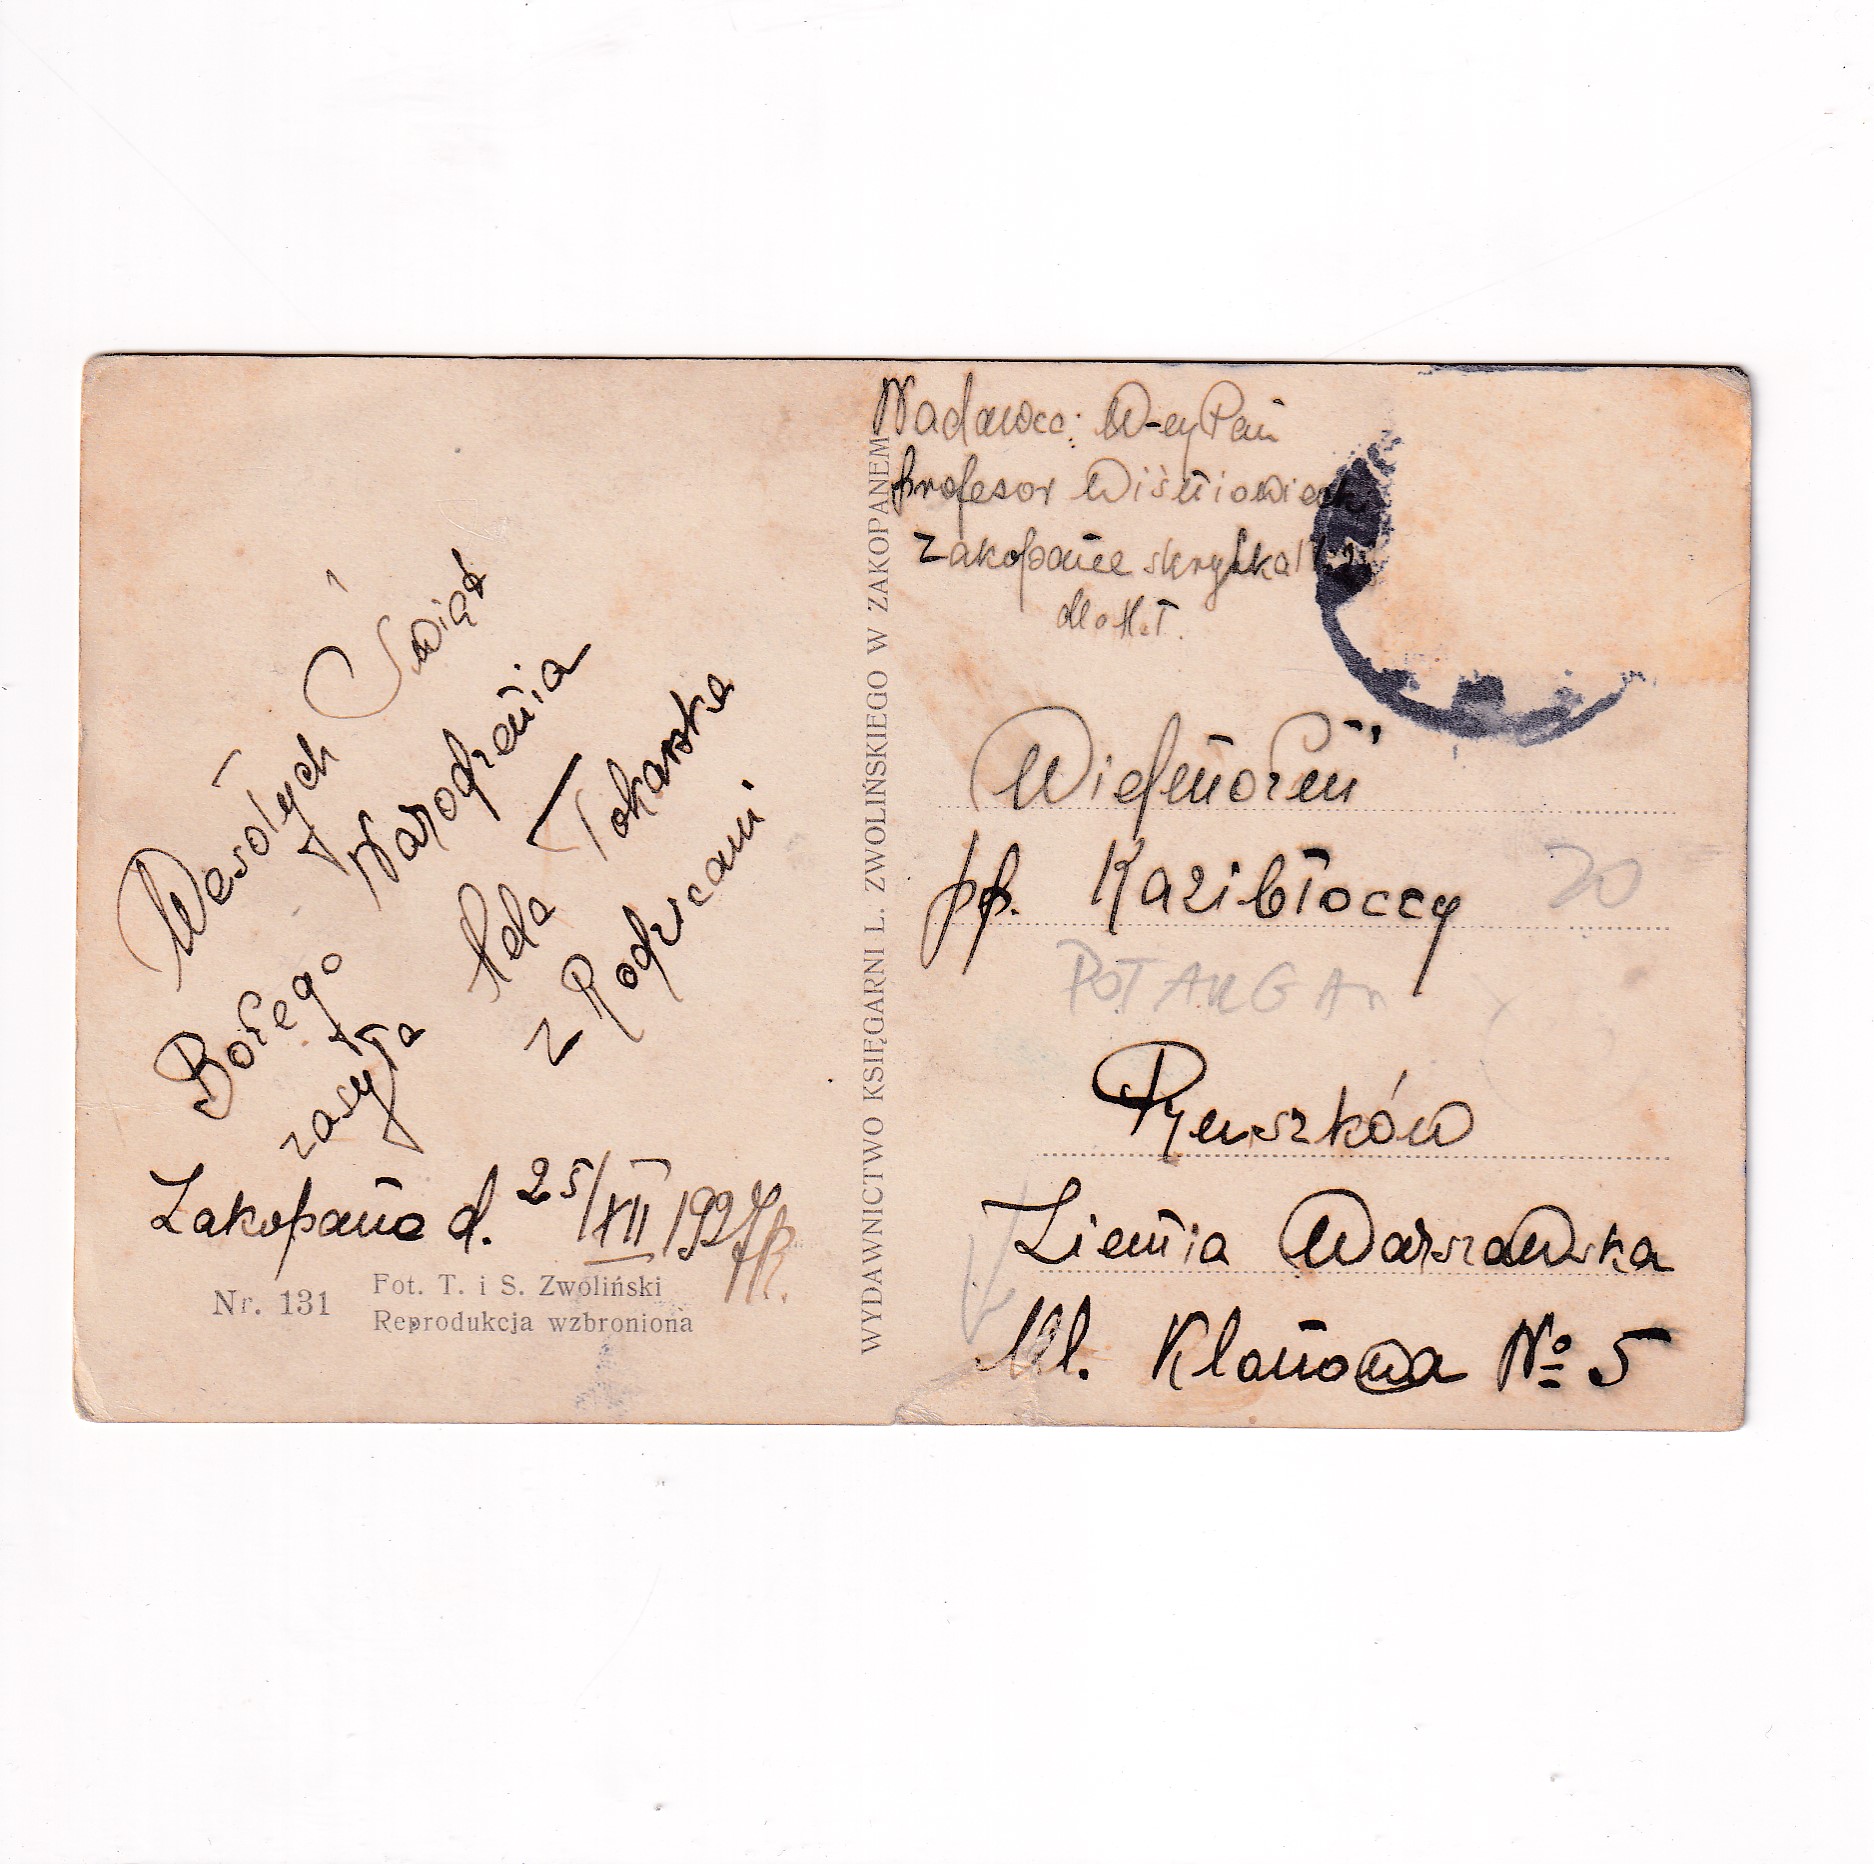 Wesołych Świąt
Bożego Narodzenia
zasyła Ada Tokarska
z Rodzicami
Zakopane d. 25/XII 1927 r.
Nr. 131
Fot. T. i S. Zwoliński
Reprodukcja wzbroniona
WYDAWNICTWO KSIĘGARNI L. ZWOLIŃSKIEGO W ZAKOPANEM
Nadawca: W-ny Pan
profesor
Zakopane skrytka
dla
Wielmożni
pp. Kazibłoccy
20
Pruszków
Ziemia Warszawska
Ul. Klonowa № 5